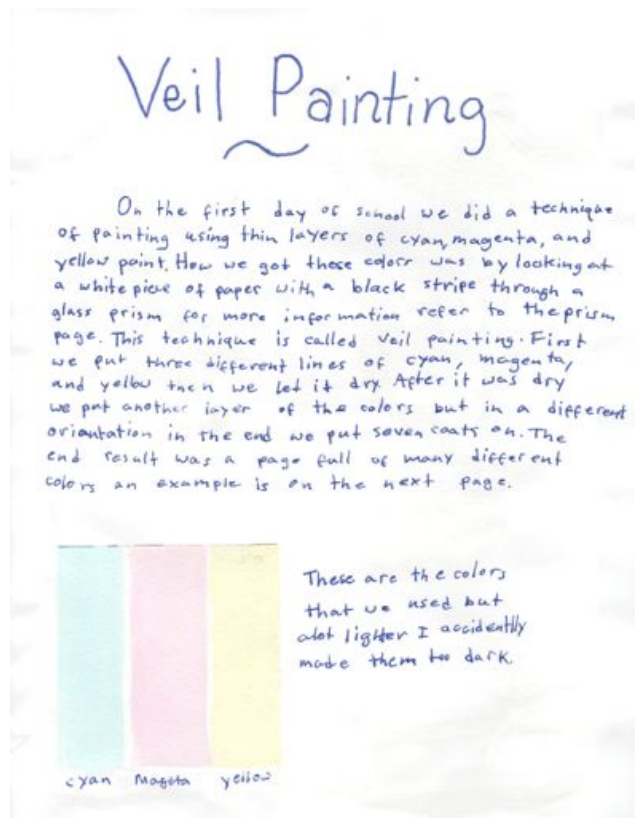 Veil Painting
On the first day of school we did a technique
of painting using thin layers of cyan, magenta, and
yellow paint. How we got these colors was by looking at
a white piece of paper with a black stripe through a
glass prism for more information refer to the prism
page. This technique is called veil painting. First
we put three different lines of cyan, magenta,
and yellow then we let it dry. After it was dry
we put another layer of the colors but in a different
oriantation in the end we put seven coats on. The
end result was a page full of many different
colors an example is on the next page.
These are the colors
that we used but
alot lighter I accidently
made them too dark.
cyan Mageta yellow